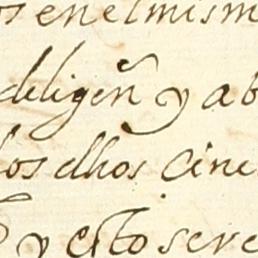 os en el mism
deligen̄ y ab
los dhos cinc
y esto sere